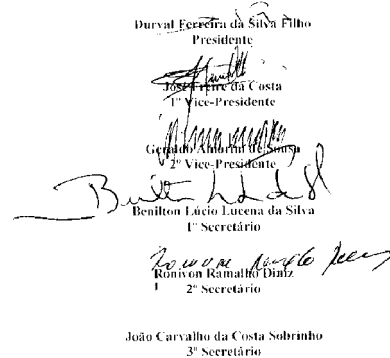 Durval Ferreira da Silva Filho
Presidente
José Freire da Costa
1º Vice-Presidente
Geraldo Amorim de Sousa
2º Vice-Presidente
Benilton Lúcio Lucena da Silva
1º Secretário
Ronivon Ramalho Diniz
2º Secretário
João Carvalho da Costa Sobrinho
3º Secretário